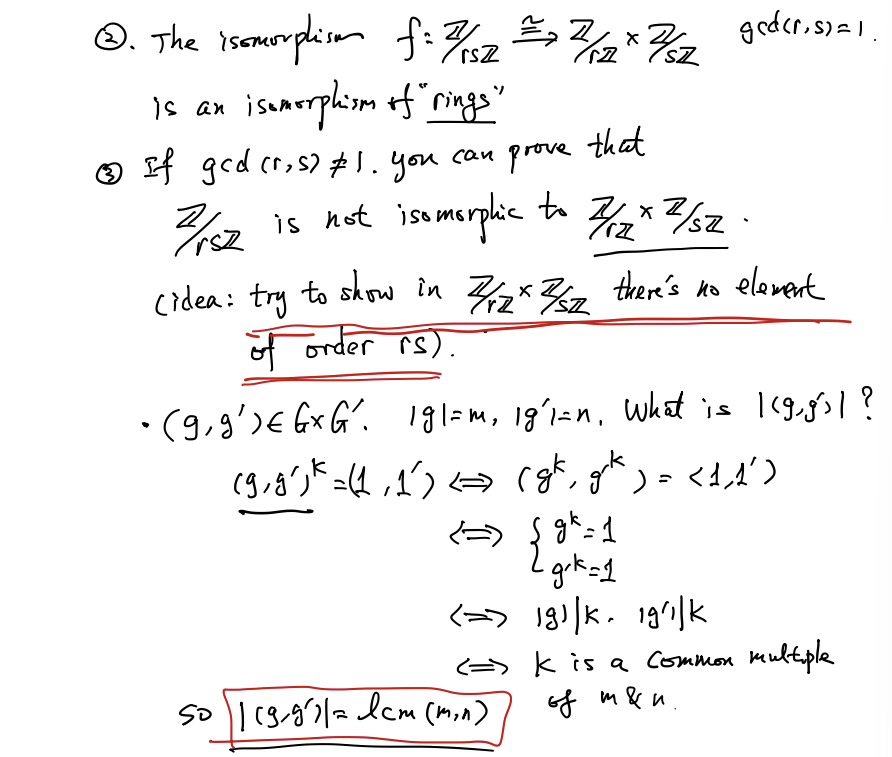 ②. The isomorphism f: ℤ/rsℤ ≅→ ℤ/rℤ × ℤ/sℤ gcd(r,s)=1.
is an isomorphism of "rings"
③ If gcd(r,s)≠1. you can prove that
ℤ/rsℤ is not isomorphic to ℤ/rℤ × ℤ/sℤ.
(idea: try to show in ℤ/rℤ × ℤ/sℤ there's no element
of order rs).
· (g,g')∈ G×G'. |g|=m, |g'|=n. What is |(g,g')| ?
(g,g')^k=(1,1') ⟺ (g^k, g'^k) = (1,1')
⟺ { g^k=1
g'^k=1
⟺ |g||k. |g'||k
⟺ k is a common multiple
of m & n.
so |(g,g')|= lcm(m,n)